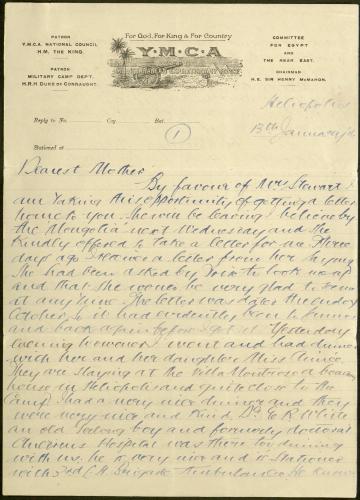 For God, For King & For Country
Y.M.C.A
PATRON
Y.M.C.A. NATIONAL COUNCIL
H.M. THE KING.
PATRON
MILITARY CAMP DEPT.
H.R.H DUKE OF CONNAUGHT.
COMMITTEE
FOR EGYPT
AND
THE NEAR EAST.
CHAIRMAN
H.E. SIR HENRY McMAHON.
Reply to No. Coy. Bat.
1
Stationed at
Heliopolis
13th January
Dearest Mother
By favour of Mrs Stewart I
am taking this opportunity of getting a letter
home to you. She will be leaving I believe by
the Mongolia next Wednesday and she
kindly offered to take a letter for me. Three
days ago I received a letter from her saying
she had been asked by to look me up
and that she would be very glad to see me
at any time. The letter was dated the
October, so it had evidently been to
and back again before I got it. Yesterday
evening however I went and had dinner
with her and her daughter Miss
They are staying at the Villa Montrose a boarding
house in Heliopolis and quite close to the
Camp. I had a very nice dinner and they
were very nice and kind. Dr. E R White
an old Geelong boy and formerly doctor at
Hospital was there too dining
with us. he is very nice and is stationed
with 3rd L.H Brigade Ambulance. He knows